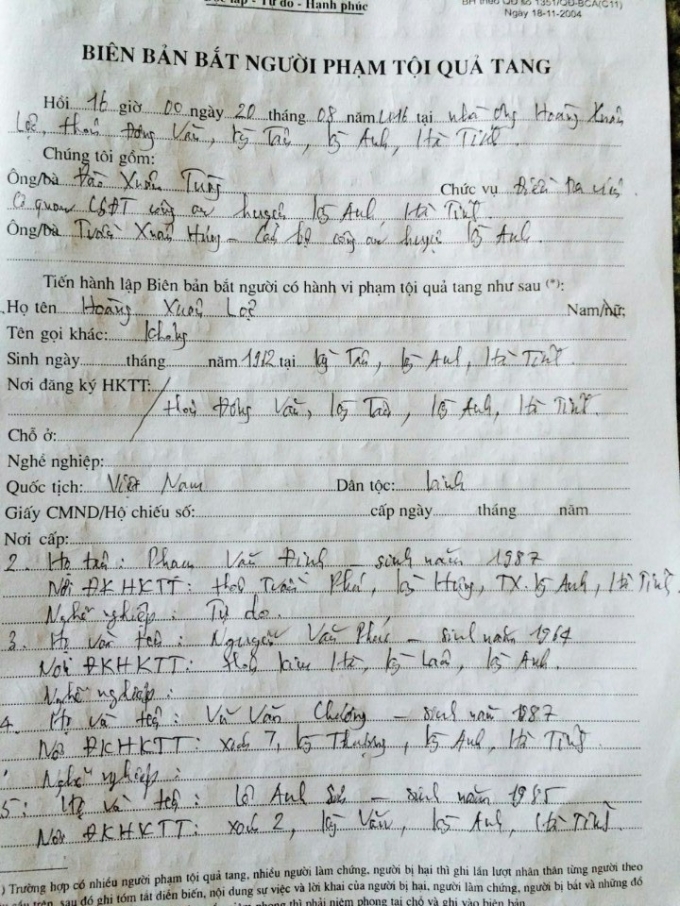 Độc lập - Tự do - Hạnh phúc
BH theo QĐ số 1351/QĐ-BCA(C11)
Ngày 18-11-2004
BIÊN BẢN BẮT NGƯỜI PHẠM TỘI QUẢ TANG
Hồi 16 giờ 00 ngày 20 tháng 08 năm 2016 tại nhà ông Hoàng Xuân
thôn Đông Văn, Kỳ Tân, Kỳ Anh, Hà Tĩnh.
Chúng tôi gồm:
Ông/bà Đào Xuân Chức vụ Điều tra viên
Cơ quan CSĐT công an huyện Kỳ Anh Hà Tĩnh.
Ông/bà Xuân Hùng - Cán bộ công an huyện Kỳ Anh.
Tiến hành lập Biên bản bắt người có hành vi phạm tội quả tang như sau (*):
Họ tên Hoàng Xuân Nam/nữ:
Tên gọi khác: Không
Sinh ngày tháng năm 1962 tại Kỳ Tân, Kỳ Anh, Hà Tĩnh
Nơi đăng ký HKTT:
Thôn Đông Văn, Kỳ Tân, Kỳ Anh, Hà Tĩnh.
Chỗ ở:
Nghề nghiệp:
Quốc tịch: Việt Nam Dân tộc: kinh
Giấy CMND/Hộ chiếu số: cấp ngày tháng năm
Nơi cấp:
2. Họ tên: Phạm Văn Định - sinh năm 1987
Nơi ĐKHKTT: Phú, Kỳ Hưng, TX. Kỳ Anh, Hà Tĩnh.
Nghề nghiệp: Tự do.
3. Họ và tên: Nguyễn Văn Phúc - sinh năm 1964
Nơi ĐKHKTT: Hà, Kỳ Anh.
Nghề nghiệp:
4. Họ và tên: Văn Chương - sinh năm 1987
Nơi ĐKHKTT: xóm 7, Kỳ Thượng, Kỳ Anh, Hà Tĩnh.
Nghề nghiệp:
5: Họ và tên: Lê Anh - sinh năm 1985
Nơi ĐKHKTT: xóm 2, Kỳ Văn, Kỳ Anh, Hà Tĩnh.
) Trường hợp có nhiều người phạm tội quả tang, nhiều người làm chứng, người bị hại thì ghi lần lượt nhân thân từng người theo
sau đó ghi tóm tắt diễn biến, nội dung sự việc và lời khai của người bị hại, người làm chứng, người bị bắt và những đồ
thì phải niêm phong tại chỗ và ghi vào biên bản